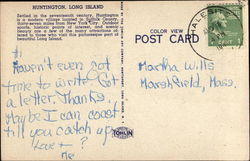 HUNTINGTON, LONG ISLAND
Settled in the seventeenth century, Huntington
is a modern village located in Suffolk County,
thirty-seven miles from New York City. Outdoor
sports, historic points of interest, and scenic
beauty are a few of the many attractions of-
fered to those who visit this picturesque part of
beautiful Long Island.
COLOR VIEW
POST CARD
HALE
Haven't even got
time to write. Got
a letter. Thanks.
Maybe I can coast
till you catch up
Love + ?
Me
Martha Wills
Marshfield, Mass.
TOMLIN